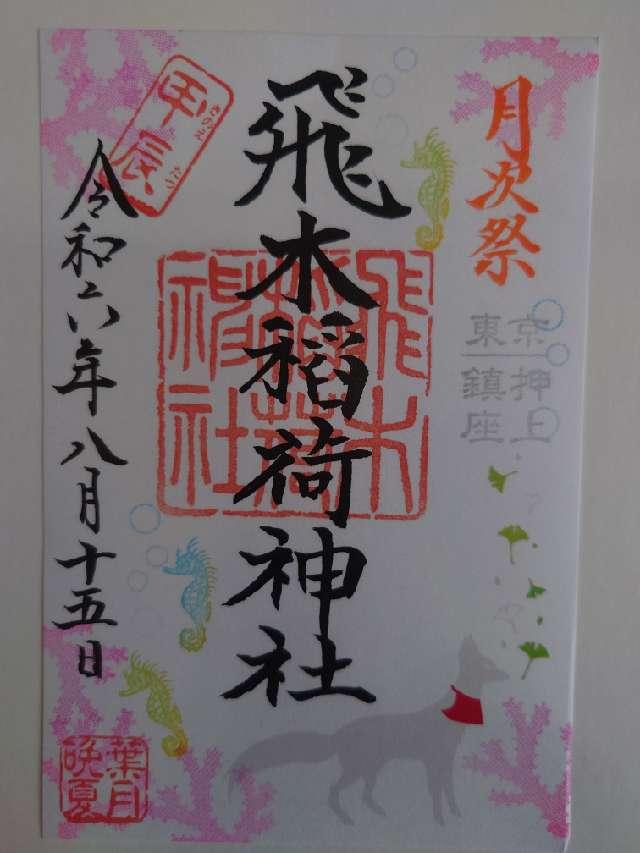 月次祭
東京押上
鎮座
飛木稲荷神社
飛木
稲荷
神社
甲辰
きのえ たつ
令和六年八月十五日
葉月
晩夏